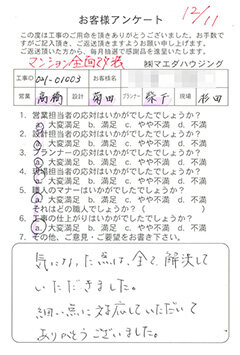 お客様アンケート
12/11
この度は工事のご用命を頂きありがとうございました。お手数で
すがご記入頂き、ご返送頂きますようお願い申し上げます。
ご返送頂いた方から、毎月抽選で感謝品を進呈いたします。
マンション全面改装
㈱マエダハウジング
工事NO. 041-01003 お客様名
営業 高橋 設計 菊田 プランナー 現場 杉田
1. 営業担当者の応対はいかがでしたでしょうか?
a. 大変満足 b. 満足 c. やや不満 d. 不満
2. 設計担当者の応対はいかがでしたでしょうか?
a. 大変満足 b. 満足 c. やや不満 d. 不満
3. プランナーの応対はいかがでしたでしょうか?
a. 大変満足 b. 満足 c. やや不満 d. 不満
4. 現場担当者の応対はいかがでしたでしょうか?
a. 大変満足 b. 満足 c. やや不満 d. 不満
5. 職人のマナーはいかがでしたでしょうか?
a. 大変満足 b. 満足 c. やや不満 d. 不満
それはどの職人でしょうか(
6. 工事の仕上がりはいかがでしたでしょうか?
a. 大変満足 b. 満足 c. やや不満 d. 不満
7. その他、ご意見・ご要望をお書き下さい。
気になった点は、全て解決して
いただきました。
細い点に対応していただいて
ありがとうございました。